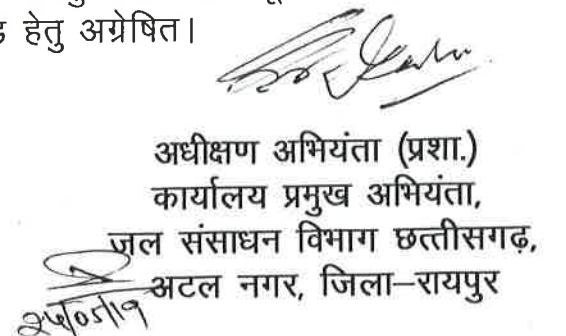 हेतु अग्रेषित।
अधीक्षण अभियंता (प्रशा.)
कार्यालय प्रमुख अभियंता,
जल संसाधन विभाग छत्तीसगढ़,
अटल नगर, जिला–रायपुर